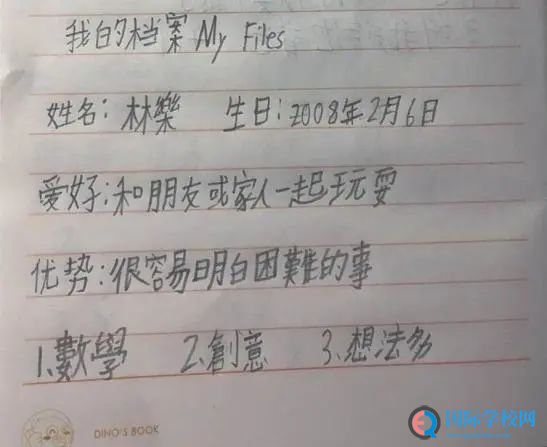 我的档案 My Files
姓名：林樂 生日：2008年2月6日
爱好：和朋友或家人一起玩耍
优势：很容易明白困難的事
1、數學 2、創意 3、想法多
DINO'S BOOK
国际学校网